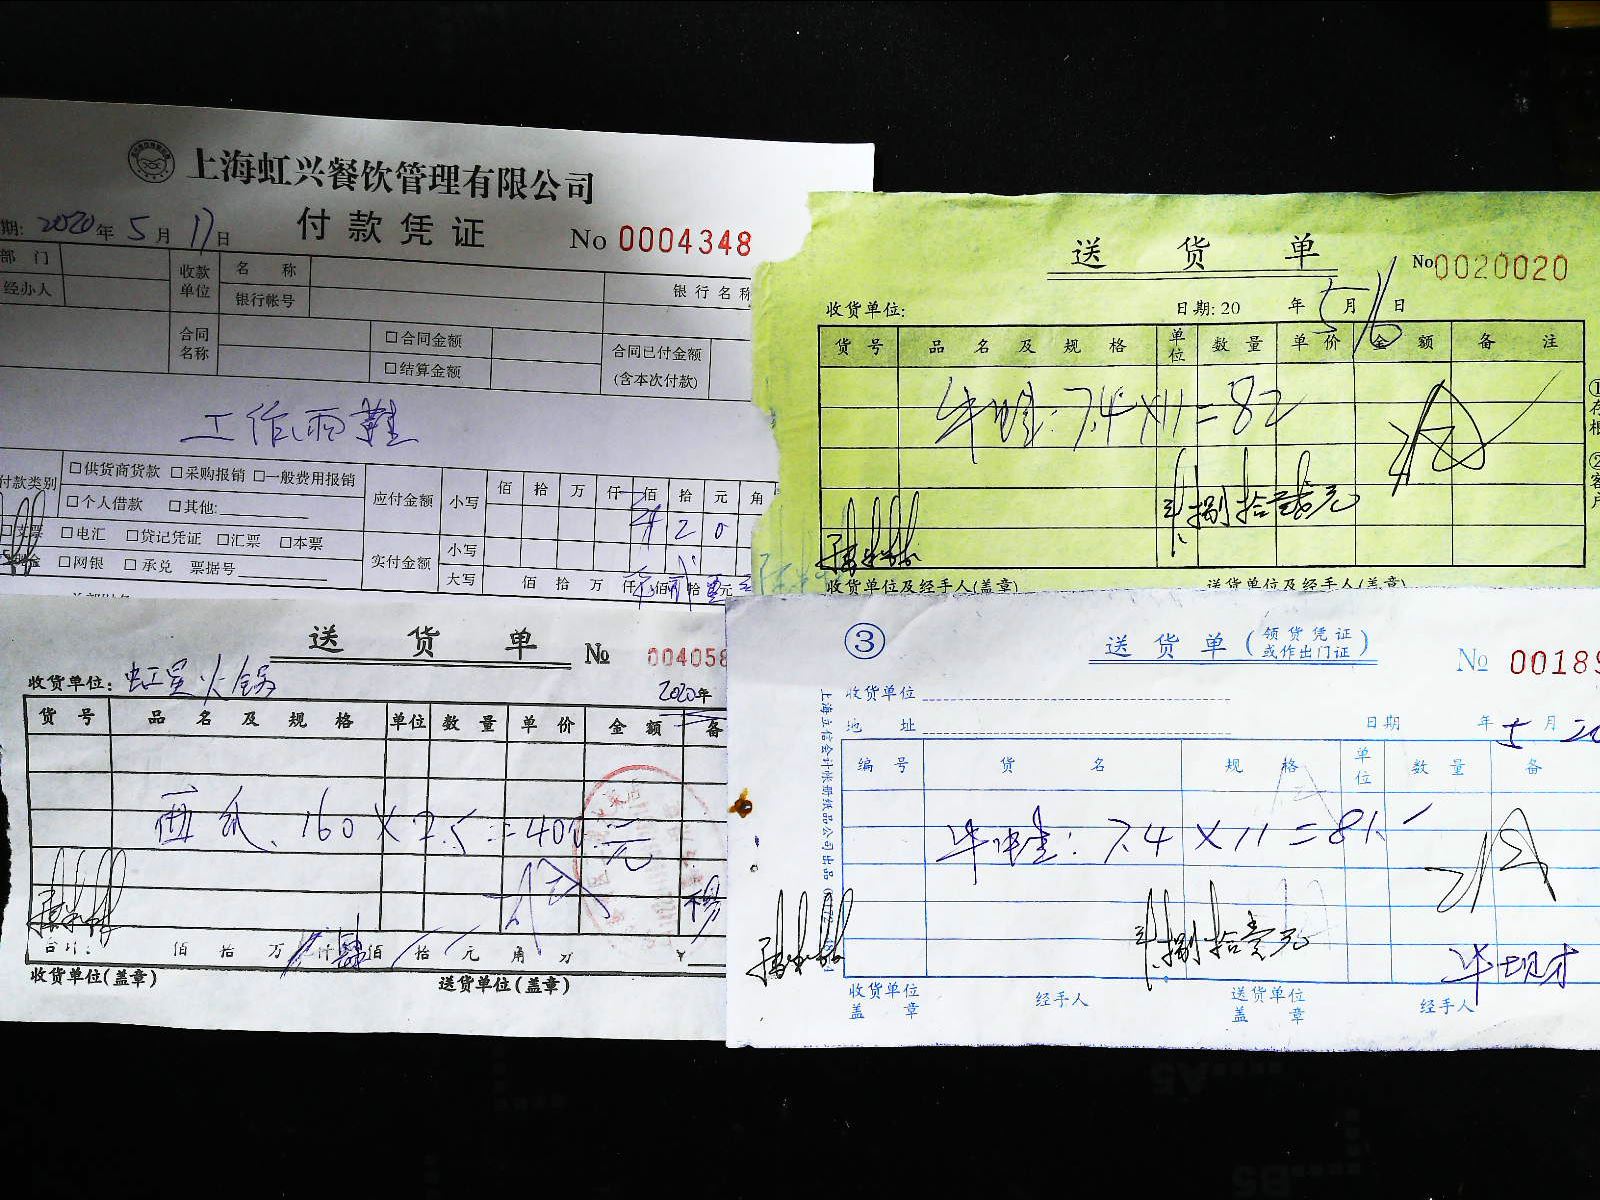 上海虹兴餐饮管理有限公司
付款凭证
No 0004348
期: 2020年 5月 17日
部 门
经办人
收款单位
名 称
银行帐号
银行名称
合同名称
□合同金额
□结算金额
合同已付金额
(含本次付款)
工作雨鞋
付款类别
□供货商货款 □采购报销 □一般费用报销
□个人借款 □其他:
□支票 □电汇 □贷记凭证 □汇票 □本票
□网银 □承兑 票据号
应付金额 小写
佰 拾 万 仟 佰 拾 元 角
2 0
实付金额 小写
大写 佰 拾 万 仟 佰 拾 元
送货单
No 0020020
收货单位:
日期: 20 年 5月 16日
货号 品名及规格 单位 数量 单价 金额 备注
牛蛙: 7.4×11=82
捌拾贰元
收货单位及经手人(盖章) 送货单位及经手人(盖章)
送货单
№ 004058
收货单位: 虹星火锅
2020年
货号 品名及规格 单位 数量 单价 金额 备
160×2.5=400元
杨
合计: 佰 拾 万 仟 肆佰 拾 元 角 分 ¥
收货单位(盖章) 送货单位(盖章)
③
送货单(领货凭证或作出门证)
№ 00189
收货单位
地 址
日期 年 5月 20
编号 货名 规格 单位 数量 备
牛蛙: 7.4×11=81
捌拾壹元
收货单位盖章 经手人 送货单位盖章 经手人